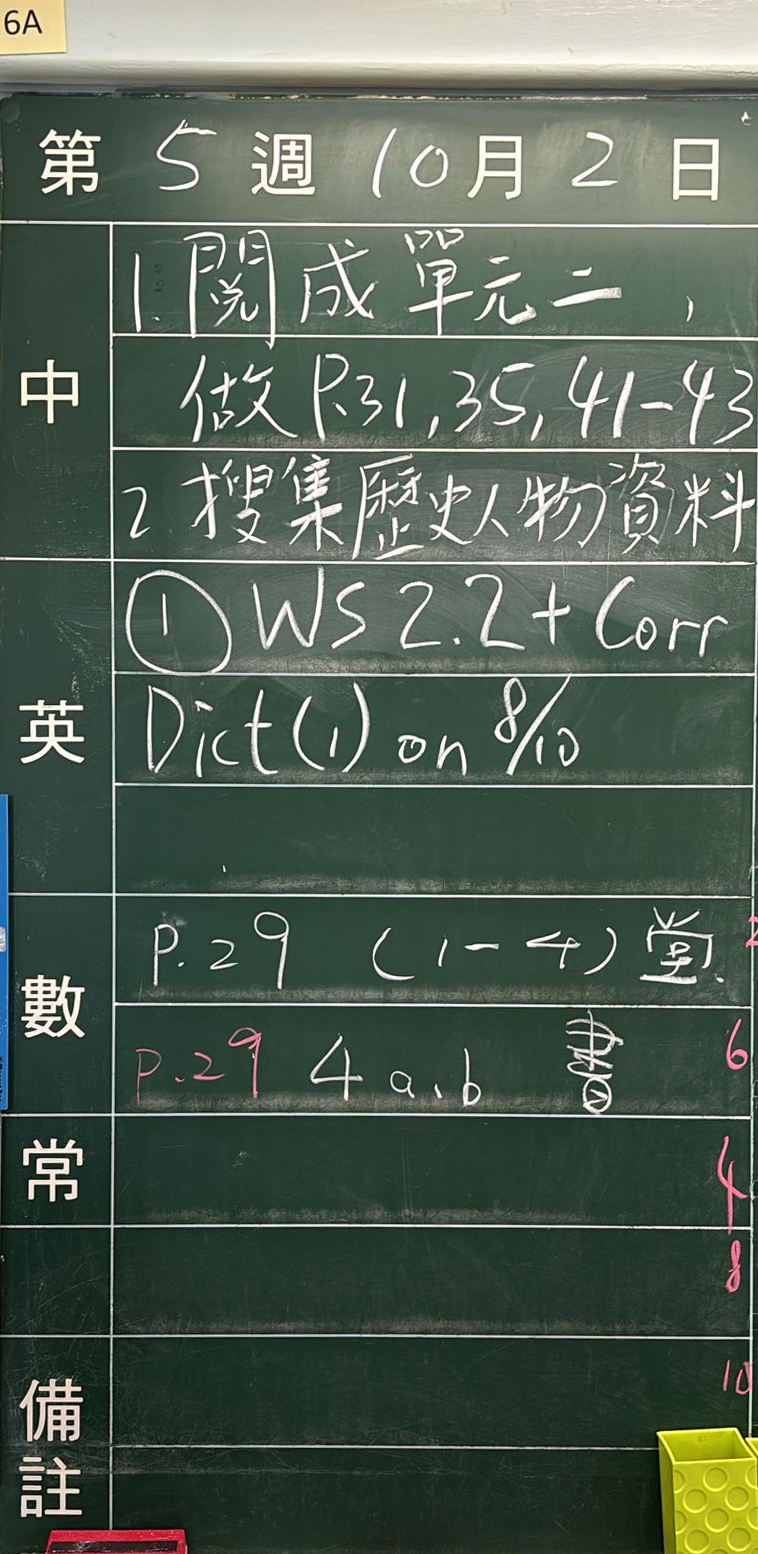 6A
第 5 週 10 月 2 日
中
1. 閱成單元二，
做 P.31, 35, 41-43
2 搜集歷史人物資料
英
① WS 2.2 + Corr
Dict (1) on 8/10
數
P.29 (1-4) 堂
2
P.29 4 a、b 書
6
常
4
8
備註
10